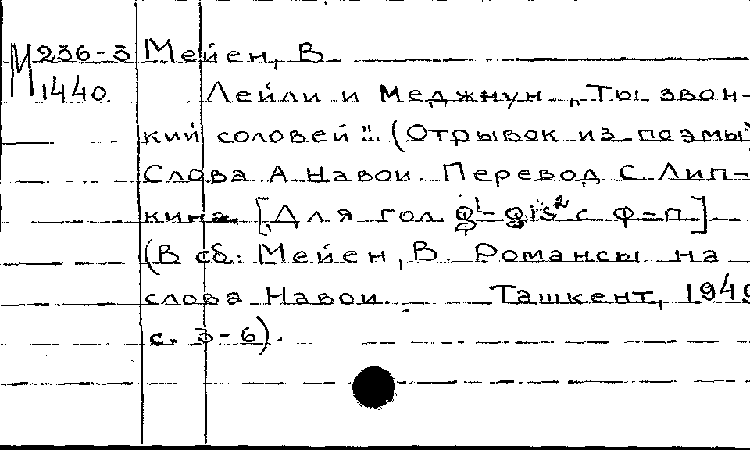 М 236-3 Мейен, В.
1440 Лейли и Меджнун. „Ты звон-
кий соловей". (Отрывок из поэмы)
Слова А. Навои. Перевод С. Лип-
кина. [Для гол. - gis² с ф-п.]
(В сб.: Мейен, В. Романсы на
слова Навои. Ташкент, 1949
с. 3-6).